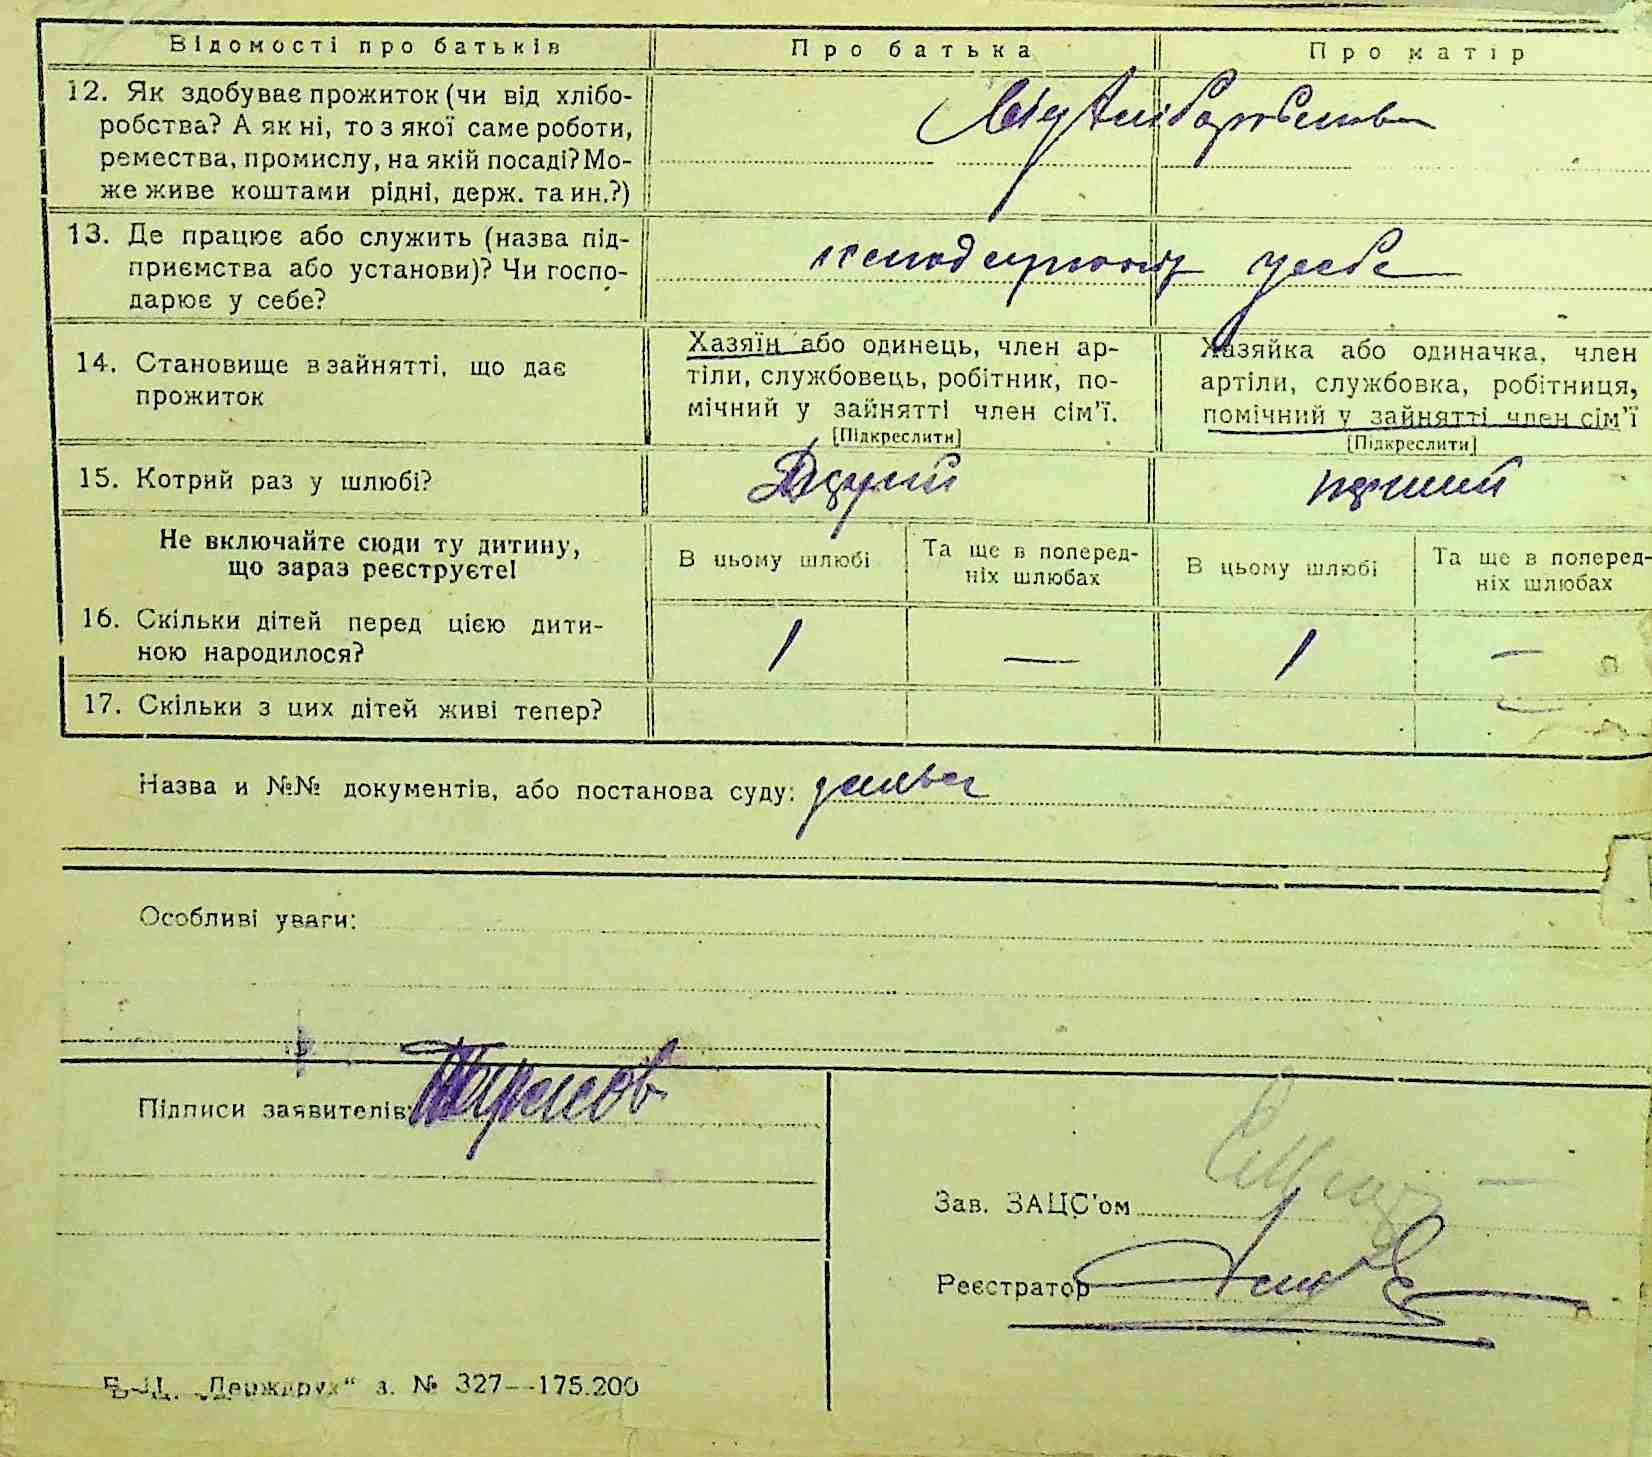 Відомості про батьків
Про батька
Про матір
12. Як здобуває прожиток (чи від хлібо-
робства? А як ні, то з якої саме роботи,
ремества, промислу, на якій посаді? Мо-
же живе коштами рідні, держ. та ин.?)
від хліборобства
13. Де працює або служить (назва під-
приємства або установи)? Чи госпо-
дарює у себе?
у себе
14. Становище в зайнятті, що дає
прожиток
Хазяїн або одинець, член ар-
тіли, службовець, робітник, по-
мічний у зайнятті член сім'ї.
[Підкреслити]
Хазяйка або одиначка, член
артіли, службовка, робітниця,
помічний у зайнятті член сім'ї
[Підкреслити]
15. Котрий раз у шлюбі?
Другий
перший
Не включайте сюди ту дитину,
що зараз реєструєте!
В цьому шлюбі
Та ще в поперед-
ніх шлюбах
В цьому шлюбі
Та ще в поперед-
ніх шлюбах
16. Скільки дітей перед цією дити-
ною народилося?
1
—
1
—
17. Скільки з цих дітей живі тепер?
—
Назва и №№ документів, або постанова суду:
Особливі уваги:
Підписи заявителів:
Зав. ЗАЦС'ом
Реєстратор
Б-Ц. „Держдрук“ з. № 327—175.200